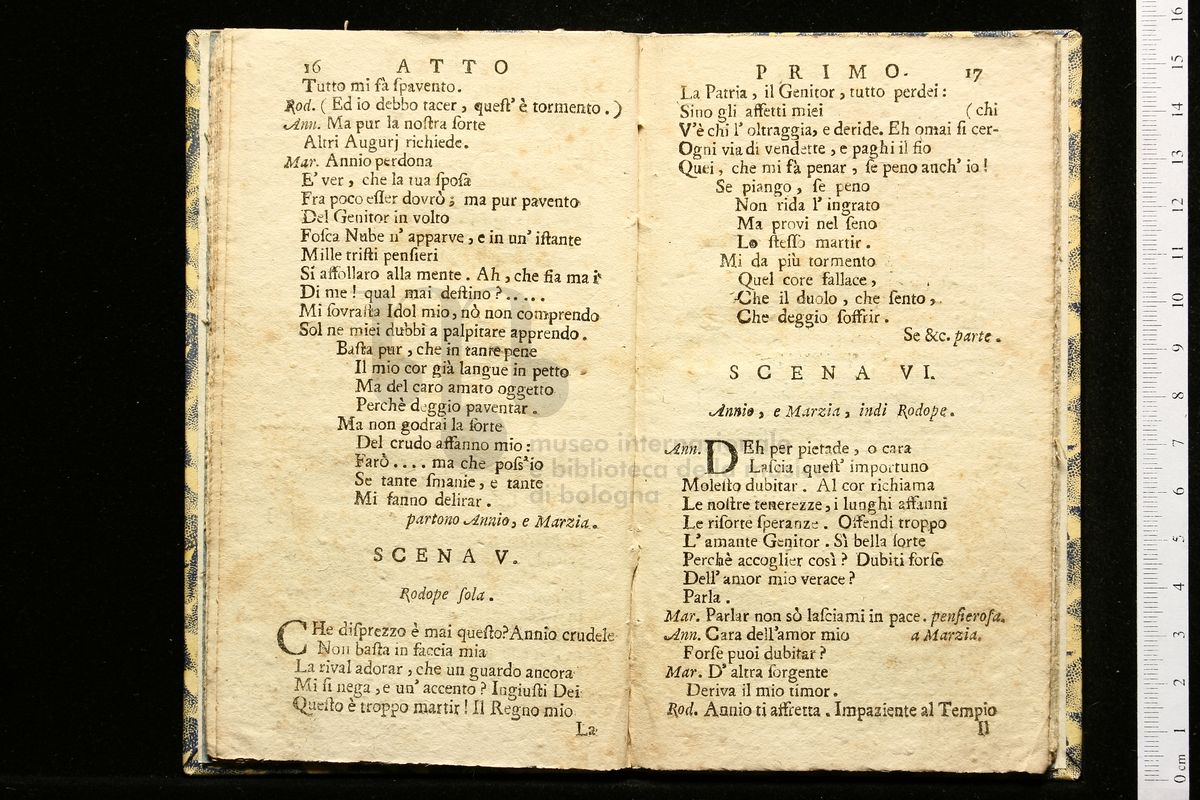 16 ATTO
Tutto mi fà ſpavento.
Rod. ( Ed io debbo tacer, queſt' è tormento. )
Ann. Ma pur la noſtra ſorte
Altri Augurj richiede.
Mar. Annio perdona
E' ver, che la tua ſpoſa
Fra poco eſſer dovrò; ma pur pavento
Del Genitor in volto
Foſca Nube n' apparve, e in un' iſtante
Mille triſti penſieri
Si affollaro alla mente. Ah, che fia mai
Di me! qual mai deſtino?.....
Mi ſovraſta Idol mio, nò non comprendo
Sol ne miei dubbi a palpitare apprendo.
Baſta pur, che in tante pene
Il mio cor già langue in petto
Ma del caro amato oggetto
Perchè deggio paventar.
Ma non godrai la ſorte
Del crudo affanno mio:
Farò.... ma che poſs'io
Se tante ſmanie, e tante
Mi fanno delirar.
partono Annio, e Marzia.
SCENA V.
Rodope ſola.
CHe diſprezzo è mai queſto? Annio crudele
Non baſta in faccia mia
La rival adorar, che un guardo ancora
Mi ſi nega, e un' accento? Ingiuſti Dei
Queſto è troppo martir! Il Regno mio
La
PRIMO. 17
La Patria, il Genitor, tutto perdei:
Sino gli affetti miei (chi
V'è chi l' oltraggia, e deride. Eh omai ſi cer-
Ogni via di vendette, e paghi il fio
Quei, che mi fà penar, ſe peno anch' io!
Se piango, ſe peno
Non rida l' ingrato
Ma provi nel ſeno
Lo ſteſſo martir.
Mi da più tormento
Quel core fallace,
Che il duolo, che ſento,
Che deggio ſoffrir.
Se &c. parte.
SCENA VI.
Annio, e Marzia, indi Rodope.
Ann. DEh per pietade, o cara
Laſcia queſt' importuno
Moleſto dubitar. Al cor richiama
Le noſtre tenerezze, i lunghi affanni
Le riſorte ſperanze. Offendi troppo
L' amante Genitor. Sì bella ſorte
Perchè accoglier così? Dubiti forſe
Dell' amor mio verace?
Parla.
Mar. Parlar non sò laſciami in pace. penſieroſa.
Ann. Cara dell'amor mio a Marzia.
Forſe puoi dubitar?
Mar. D' altra ſorgente
Deriva il mio timor.
Rod. Annio ti affretta. Impaziente al Tempio
Il
museo internazionale
e biblioteca della musica
di bologna
0 cm 1 2 3 4 5 6 7 8 9 10 11 12 13 14 15 16